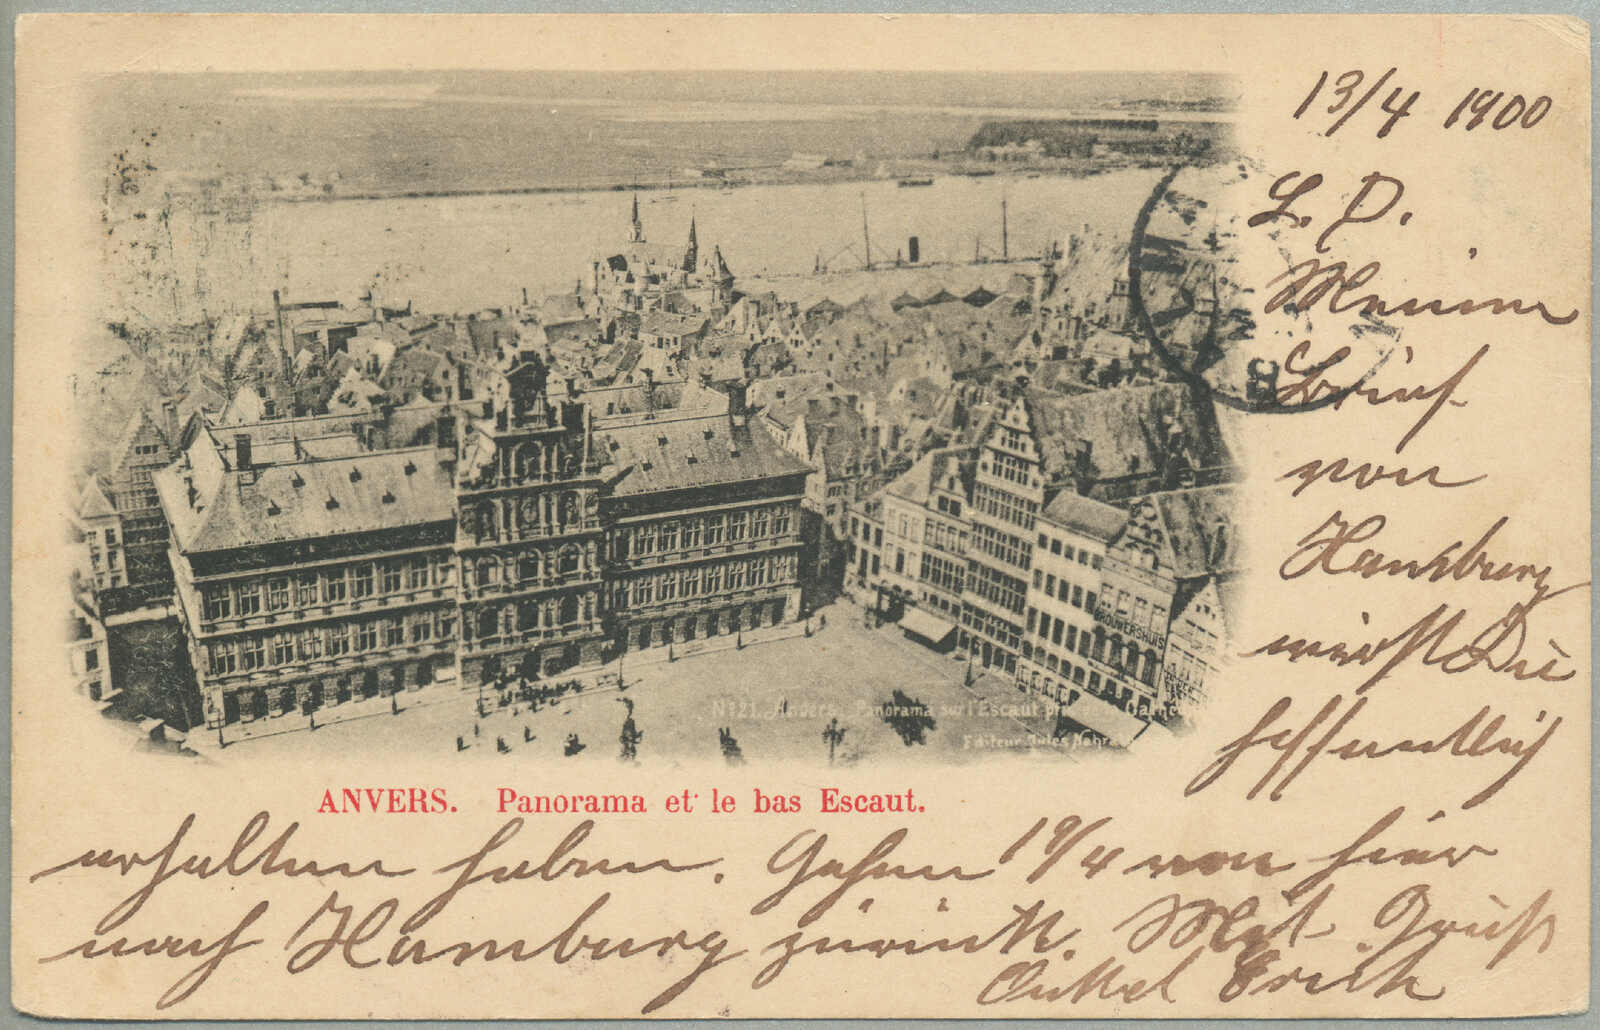 13/4 1900
L. P.
Meinen
Brief
von
Hamburg
wirst Du
hoffentlich
BROUWERSHUIS
No 21. Anvers. Panorama sur l'Escaut
Editeur Jules
ANVERS. Panorama et le bas Escaut.
erhalten haben. Gehen 19/4 von hier
nach Hamburg zurück. Mit Gruß
Onkel Erich